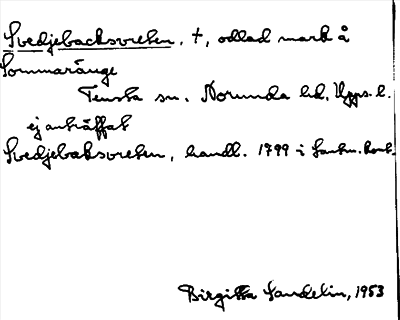 Svedjebacksvreten. †, odlad mark å
Sommaränge
Tensta sn. Norunda hd, Upps. l.
ej anträffat
Svedjebaksvreten, handl. 1799 i Lantm. kont.
Birgitta Sandelin, 1953